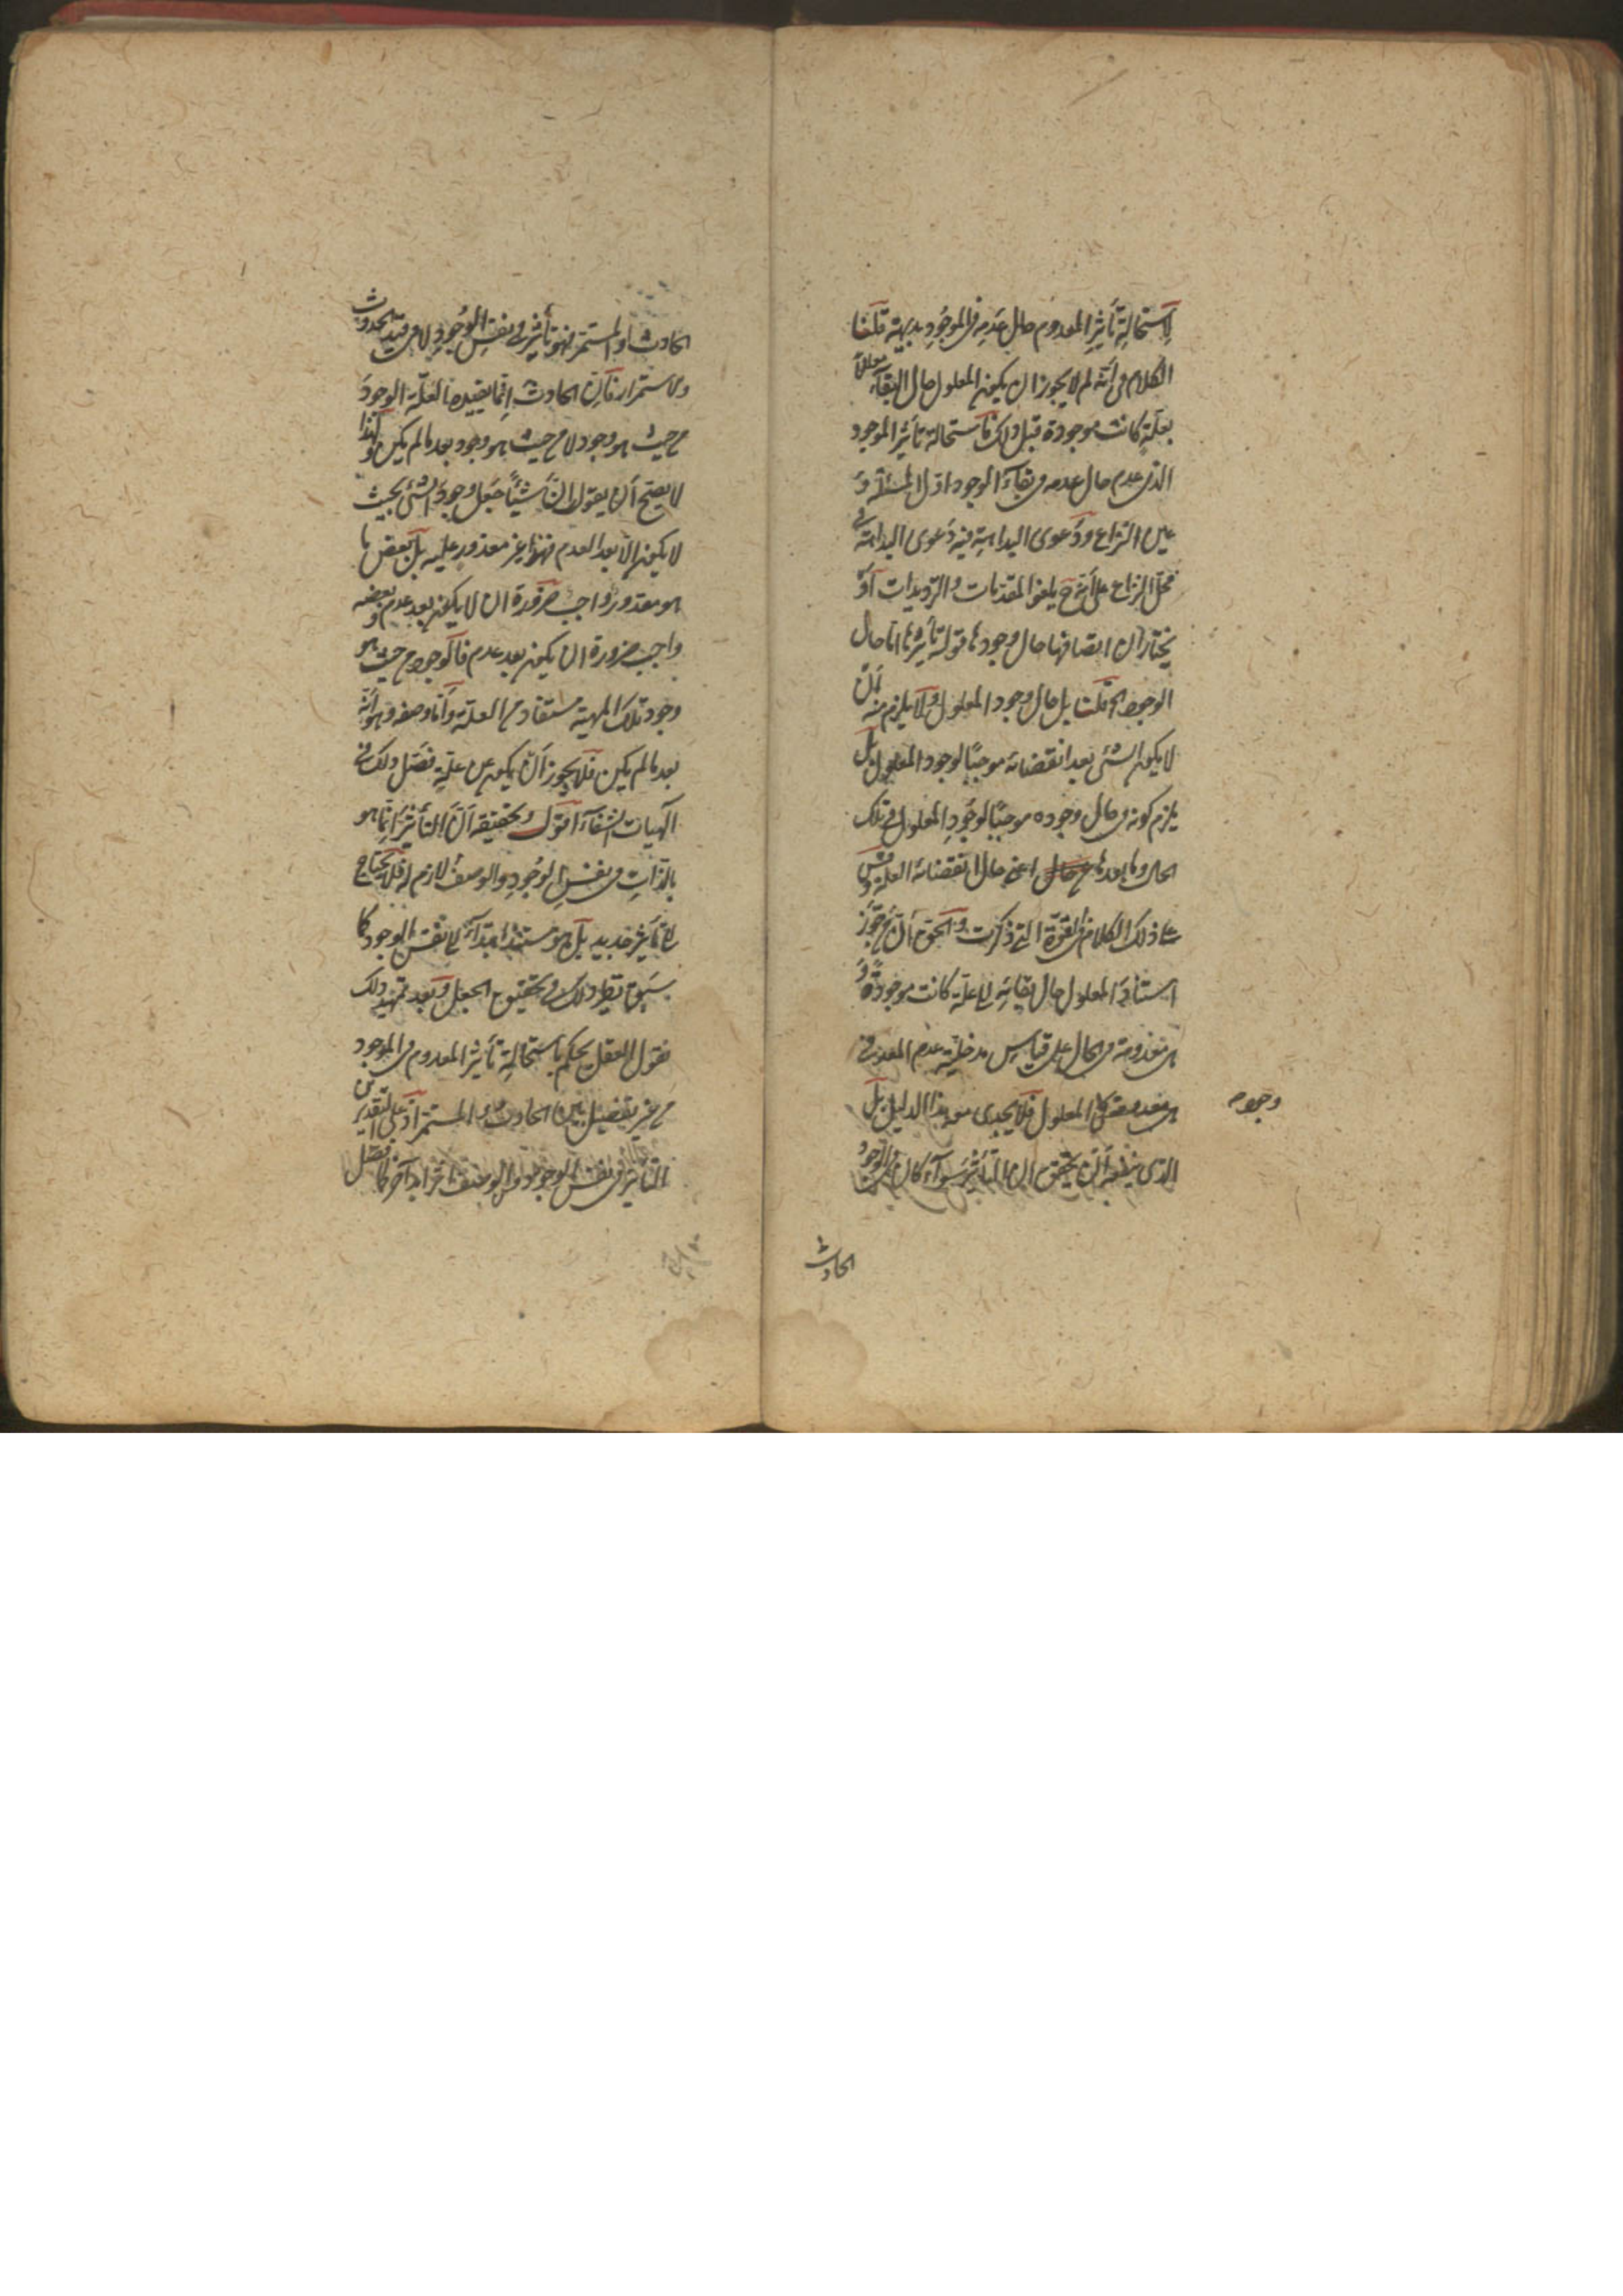 لاستحالة تأثير المعدوم حال عدمه في الموجود بديهية قلنا
الكلام في أنه لم لا يجوز ان يكون المعلول حال البقاء معلقا
بعلة كانت موجودة قبل ذلك فاستحالة تأثير الموجود
الذي عدم حال عدمه في بقاء الوجود اول المسئلة و
عين النزاع ودعوى البداهة فيه دعوى البداهة في
محل النزاع على أنه ح يلغو المقدمات والترديدات او
يختار ان اتصافها حال وجودها قوله تأثيرها اما حال
الوجود الخ قلنا بل حال وجود المعلول ولا يلزم منه أن
لا يكون الشئ بعد انقضائه موجبا لوجود المعلول بل
يلزم كونه في حال وجوده موجبا لوجود المعلول في تلك
الحال وما بعدها اعني حال انقضائه العلة وقس
على ذلك الكلام في القوة التي ذكرت والحق ان من جوز
استناد المعلول حال بقائه الى علة كانت موجودة و
هي معدومة في الحال على قياس مدخلية عدم المعد في
وجود المعلول فلا يجدى معه هذا الدليل بل
وجوده
الذي ينفعه أن يحقق ان التأثير سواء كان في الوجود
الحادث
الحادث او المستمر فهو تأثير في نفس الوجود لا في قيد الحدوث
والاستمرار فان الحادث انما يفيده العلة الوجود
من حيث هو وجود لا من حيث هو وجود بعد ما لم يكن ولهذا
لا يصح أن يقول ان شيئا جعل وجود الشئ بحيث
لا يكون الا بعد العدم فهذا غير مقدور عليه بل بعض ما
هو مقدور واجب ضرورة ان لا يكون بعد عدم وبعضه
واجب ضرورة ان يكون بعد عدم فالوجود من حيث هو
وجود تلك المهية مستفاد من العلة وأما وصفه وهو أنه
بعد ما لم يكن فلا يجوز أن يكون عن علة فصل ذلك في
الهيات الشفاء اقول وتحقيقه أن التأثير إنما هو
بالذات في نفس الوجود والوصف لازم له فلا يحتاج
الى تأثير جديد بل هو مستند ابتداء الى نفس الوجود كما
سبق نظير ذلك في تحقيق الجعل وبعد تمهيد ذلك
نقول العقل يحكم باستحالة تأثير المعدوم في الموجود
من غير تفصيل بين الحادث والمستمر اذ على التقديرين
التأثير في نفس الوجود والوصف امر آخر كما فصل